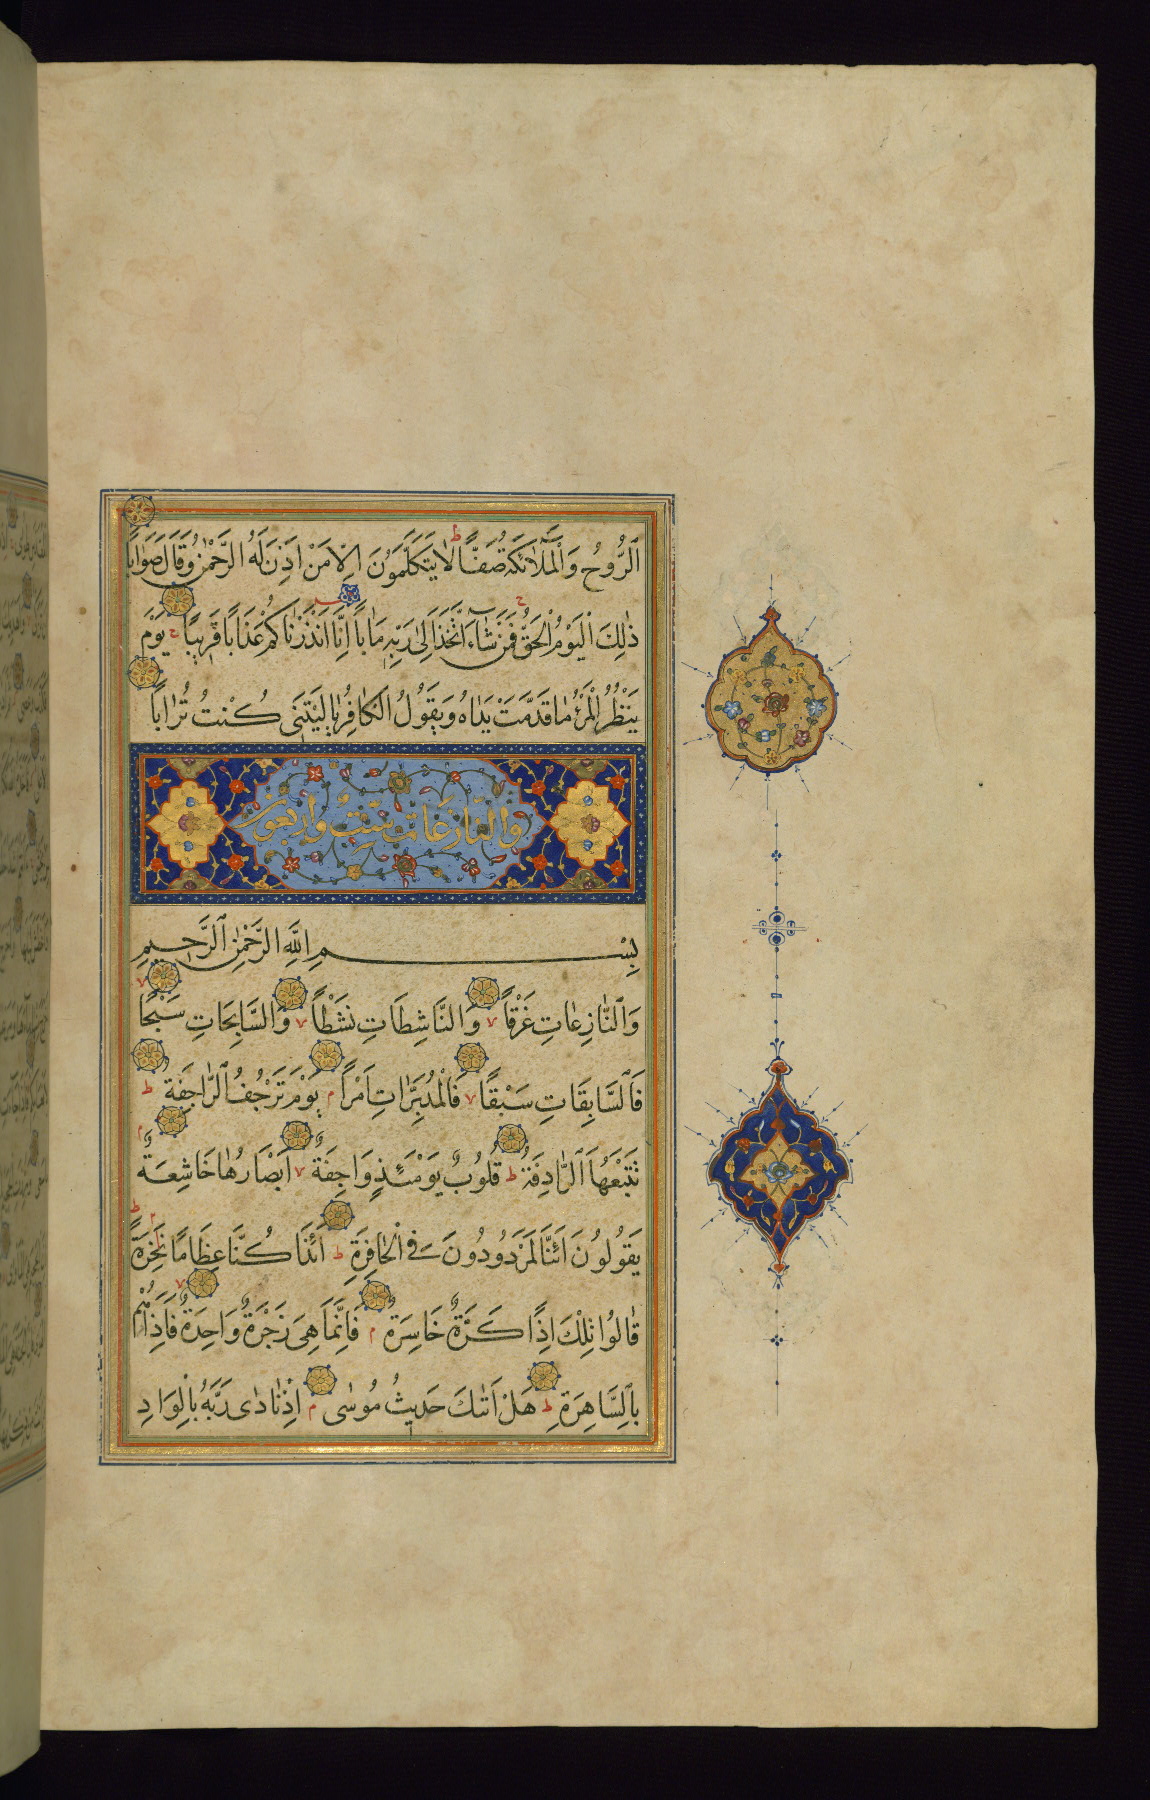 ٱلرُّوحُ وَالْمَلَائِكَةُ صَفًّا لَا يَتَكَلَّمُونَ اِلَّا مَنْ اَذِنَ لَهُ الرَّحْمٰنُ وَقَالَ صَوَابًا
ذٰلِكَ الْيَوْمُ الْحَقُّ فَمَنْ شَاءَ اتَّخَذَ اِلٰى رَبِّهِ مَاٰبًا اِنَّا اَنْذَرْنَاكُمْ عَذَابًا قَرِيبًا يَوْمَ
يَنْظُرُ الْمَرْءُ مَا قَدَّمَتْ يَدَاهُ وَيَقُولُ الْكَافِرُ يَا لَيْتَنِى كُنْتُ تُرَابًا
والنازعات ست واربعون
بِسْمِ اللّٰهِ الرَّحْمٰنِ الرَّحِيمِ
وَالنَّازِعَاتِ غَرْقًا وَالنَّاشِطَاتِ نَشْطًا وَالسَّابِحَاتِ سَبْحًا
فَالسَّابِقَاتِ سَبْقًا فَالْمُدَبِّرَاتِ اَمْرًا يَوْمَ تَرْجُفُ الرَّاجِفَةُ
تَتْبَعُهَا الرَّادِفَةُ قُلُوبٌ يَوْمَئِذٍ وَاجِفَةٌ اَبْصَارُهَا خَاشِعَةٌ
يَقُولُونَ اَئِنَّا لَمَرْدُودُونَ فِى الْحَافِرَةِ اَئِذَا كُنَّا عِظَامًا نَخِرَةً
قَالُوا تِلْكَ اِذًا كَرَّةٌ خَاسِرَةٌ فَاِنَّمَا هِىَ زَجْرَةٌ وَاحِدَةٌ فَاِذَا هُمْ
بِالسَّاهِرَةِ هَلْ اَتٰىكَ حَدِيثُ مُوسٰى اِذْ نَادٰى رَبُّهُ بِالْوَادِ